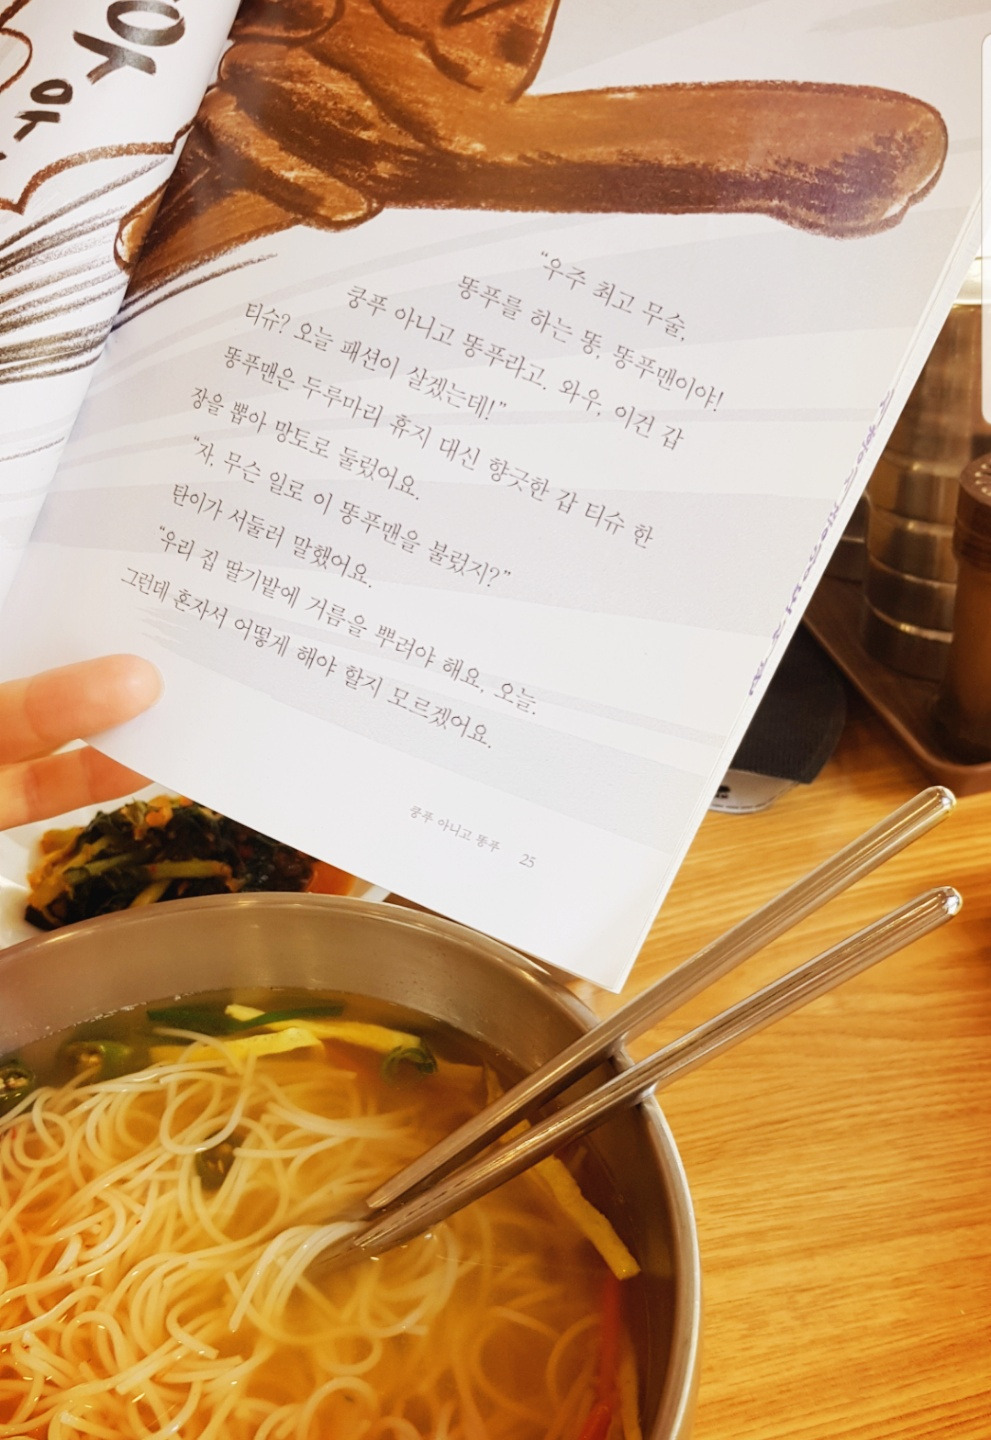 야
아
“우주 최고 무술,
똥푸를 하는 똥, 똥푸맨이야!
쿵푸 아니고 똥푸라고. 와우, 이건 갑
티슈? 오늘 패션이 살겠는데!”
똥푸맨은 두루마리 휴지 대신 향긋한 갑 티슈 한
장을 뽑아 망토로 둘렀어요.
“자, 무슨 일로 이 똥푸맨을 불렀지?”
탄이가 서둘러 말했어요.
“우리 집 딸기밭에 거름을 뿌려야 해요. 오늘.
그런데 혼자서 어떻게 해야 할지 모르겠어요.
쿵푸 아니고 똥푸 25